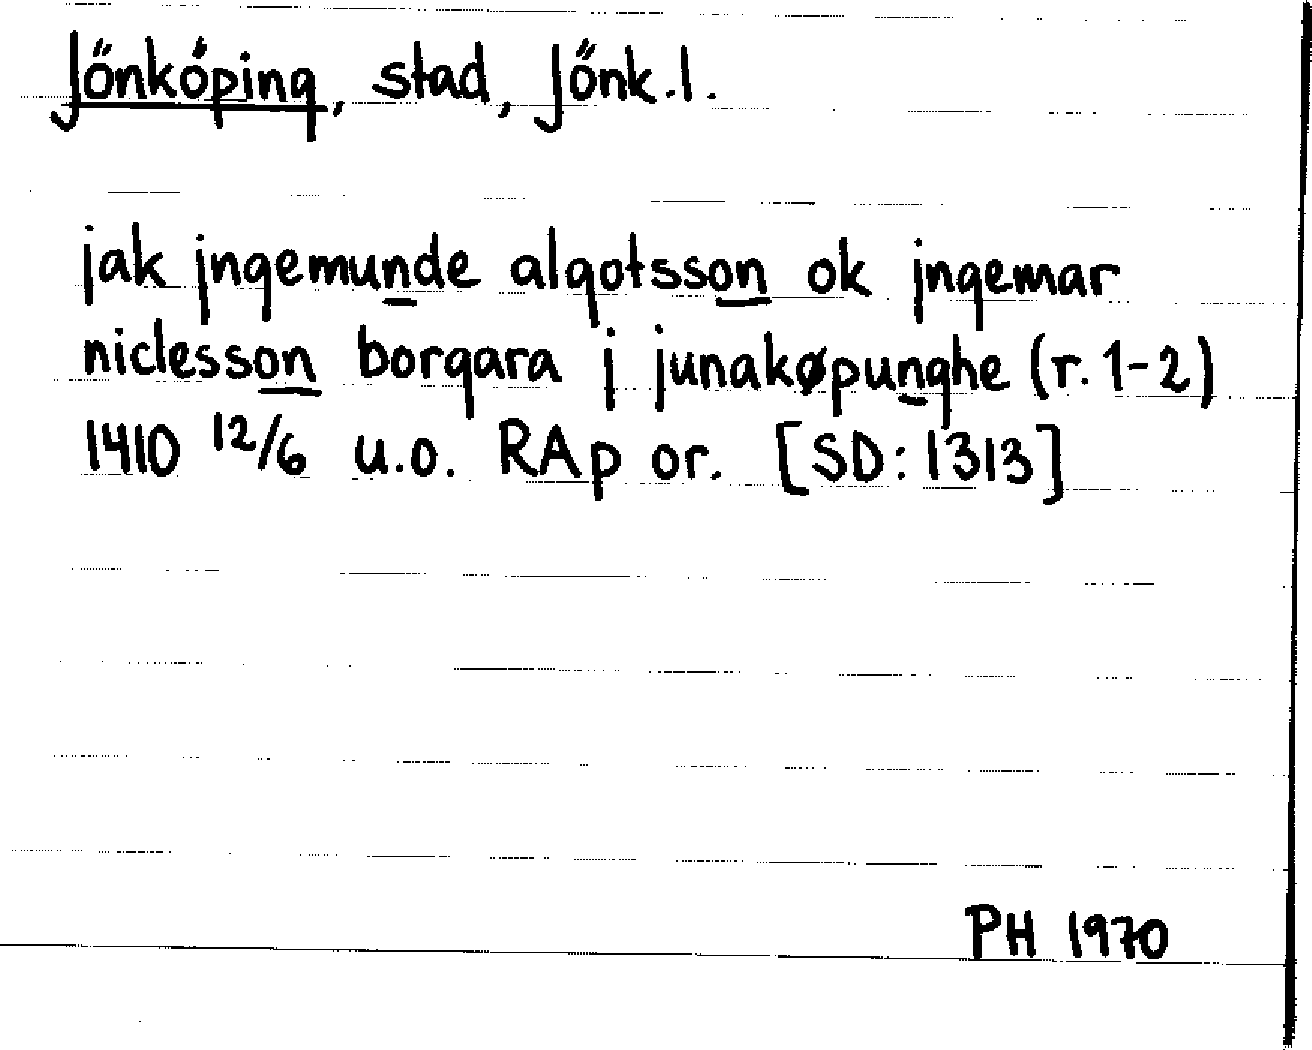 Jönköping, stad, Jönk.l.
jak jngemunde algotsson ok jngemar
niclesson borgara j junakøpunghe (r. 1-2)
1410 12/6 u.o. RAp or. [SD: 1313]
PH 1970